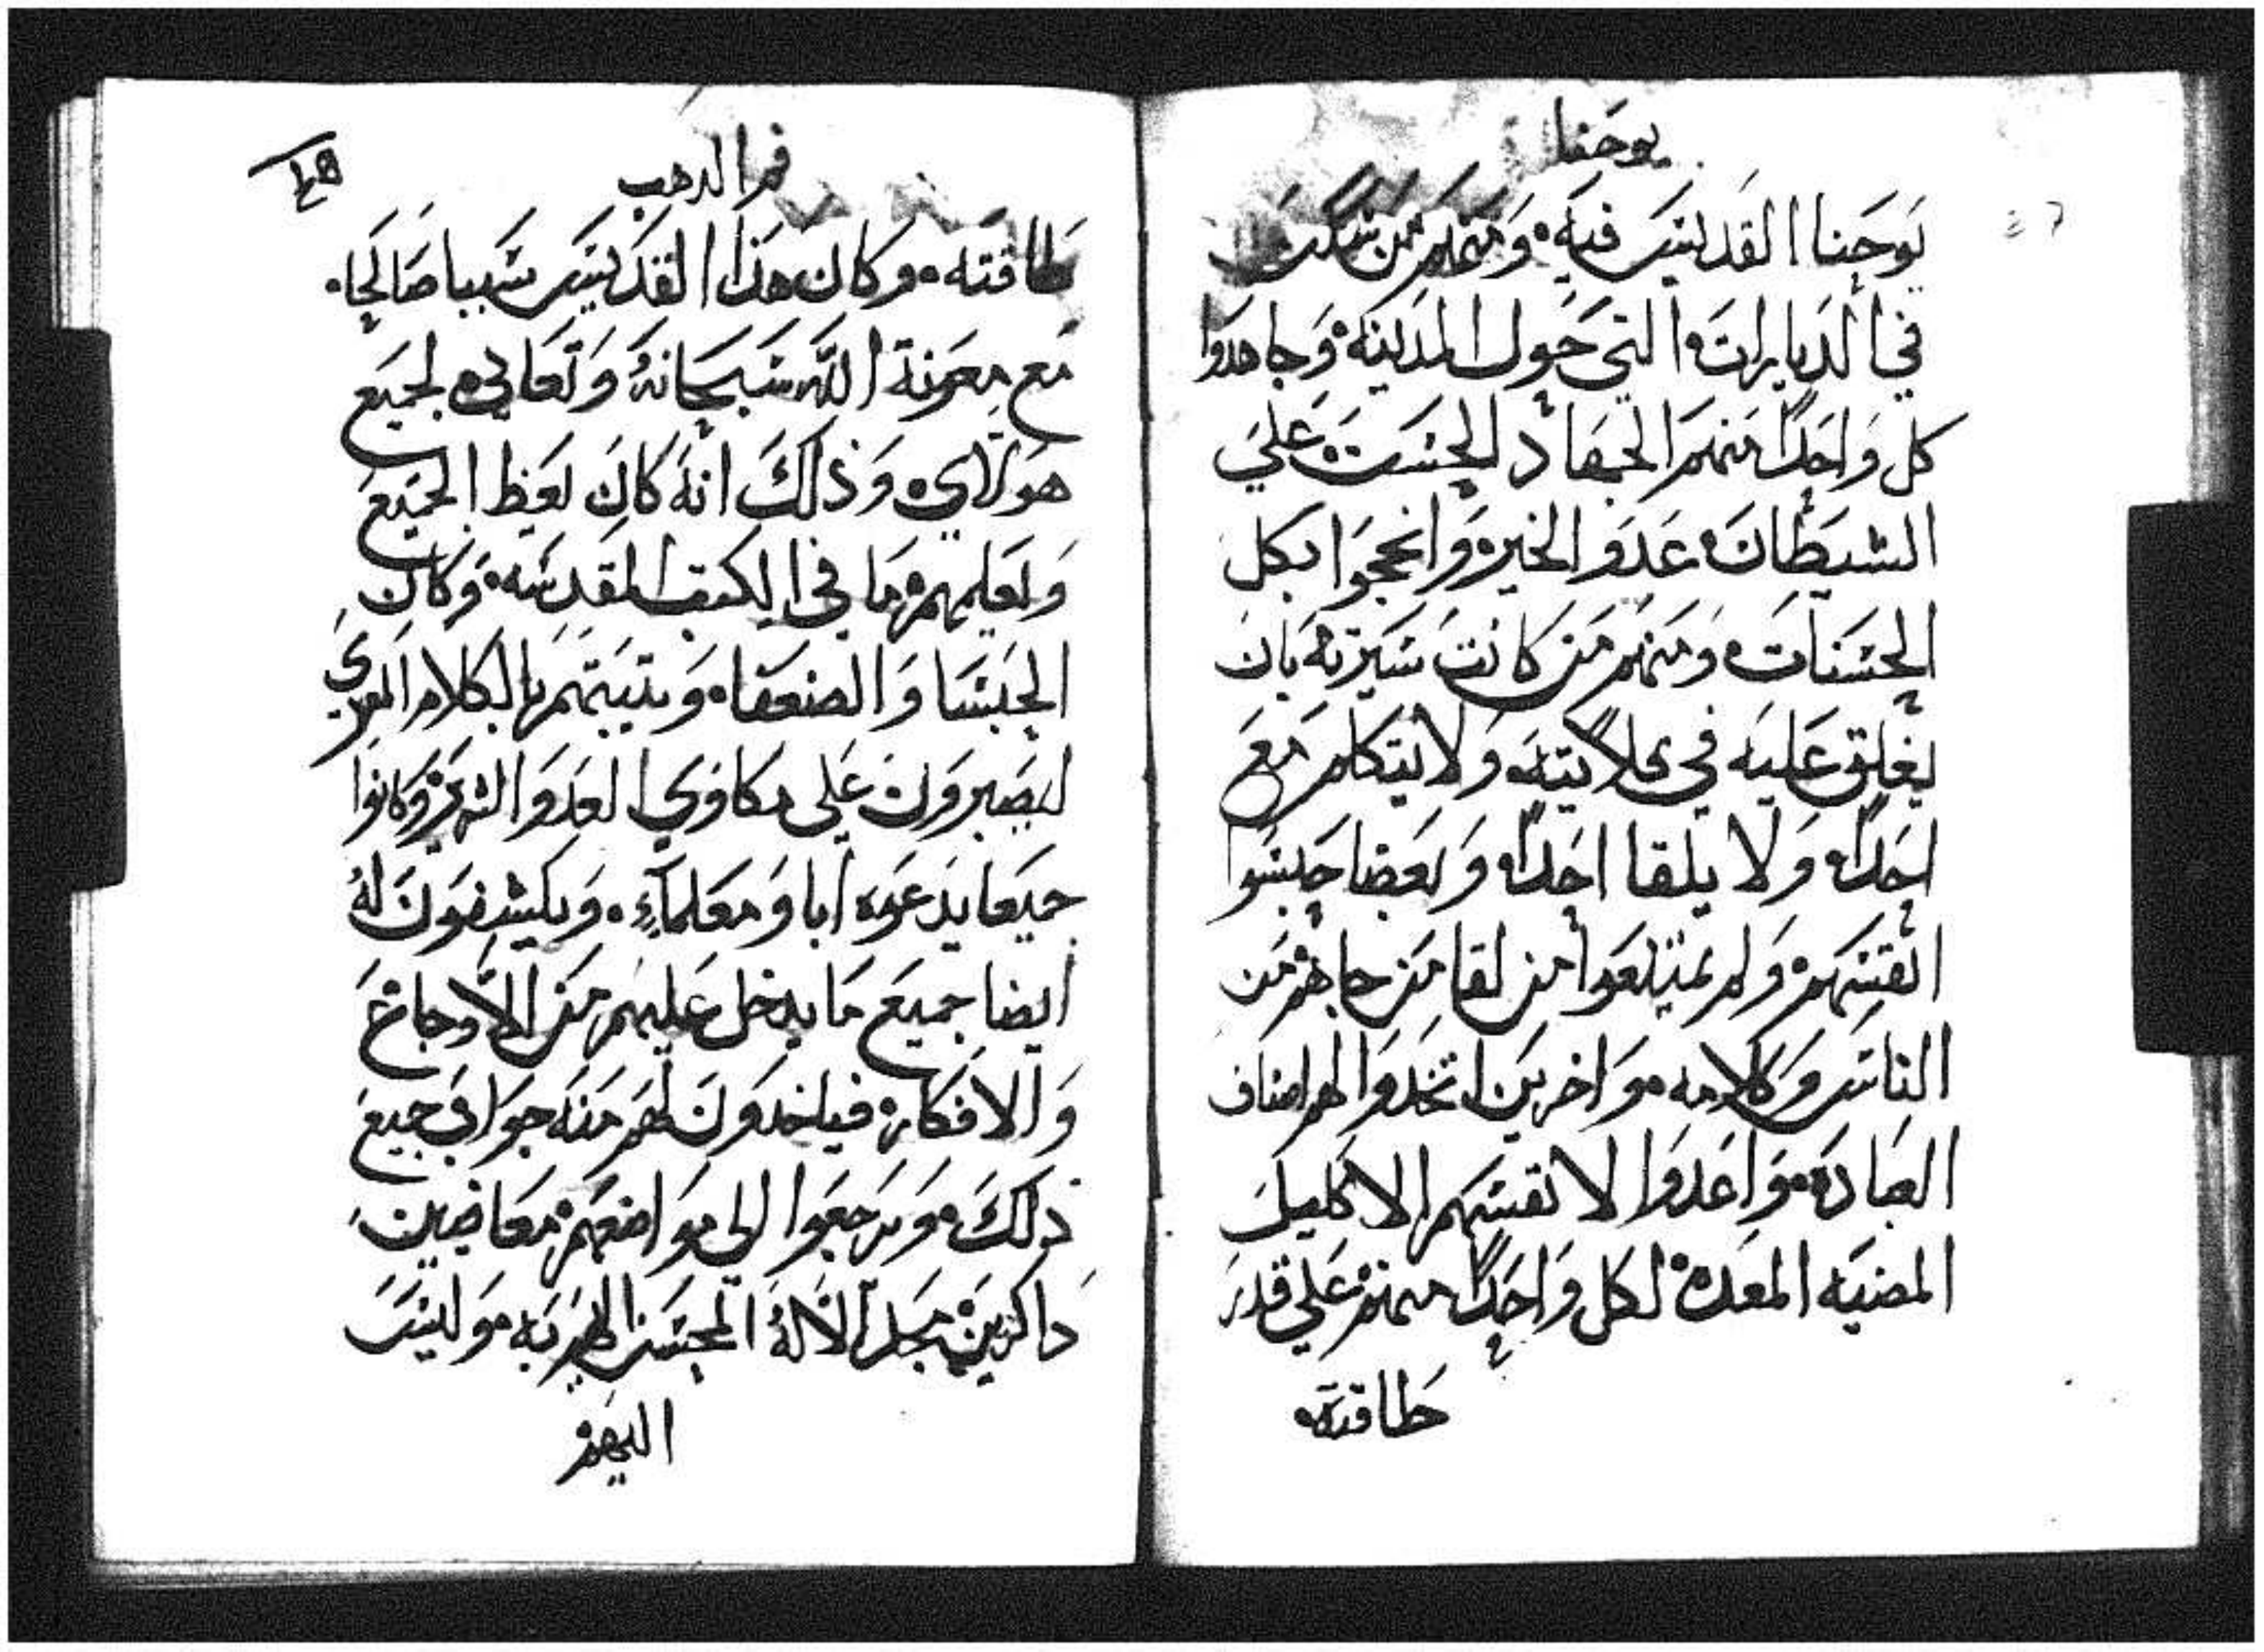 يوحنا
يوحنا القديس فيه. ومنهم من سكن
في الديارات التي حول المدينة وجاهدوا
كل واحدًا منهم الجهاد الحسن. علي
الشيطان عدو الخير وانججوا بكل
الحسنات ومنهم من كانت سيرته بان
يغلق عليه في قلايته ولا يتكلم مع
احدًا ولا يلقا احدًا وبعضا حبسوا
انفسهم ولم يمتنعوا من لقا من جاهم من
الناس وكلامه. واخرين اتخدوا لهم اصناف
العبادة. واعدوا لانفسهم الاكليل
المضيه المعدة لكل واحدًا منهم علي قدر
طاقته
فم الدهب
طاقته. وكان هذا القديس سببا صالحا.
مع معونة الله سبحانه وتعالي لجميع
هولاي وذلك انه كان يعظ الجميع
ويعلمهم ما في الكتب المقدسه. وكان
الحبسا والضعفا. ويتبتهم بالكلام المعزي
ليصبرون علي مكاوي العدو الشرير وكانوا
جميعا يدعوه ابا ومعلمآءٍ. ويكشفون له
ايضا جميع ما يدخل عليهم من الاوجاع
والافكار. فياخدون لهم منه جوابي جميع
ذلك. ويرجعوا الي مواضعهم معافيين
داكرين مجد الالاه المحسن اليهم به. وليس
اليهم